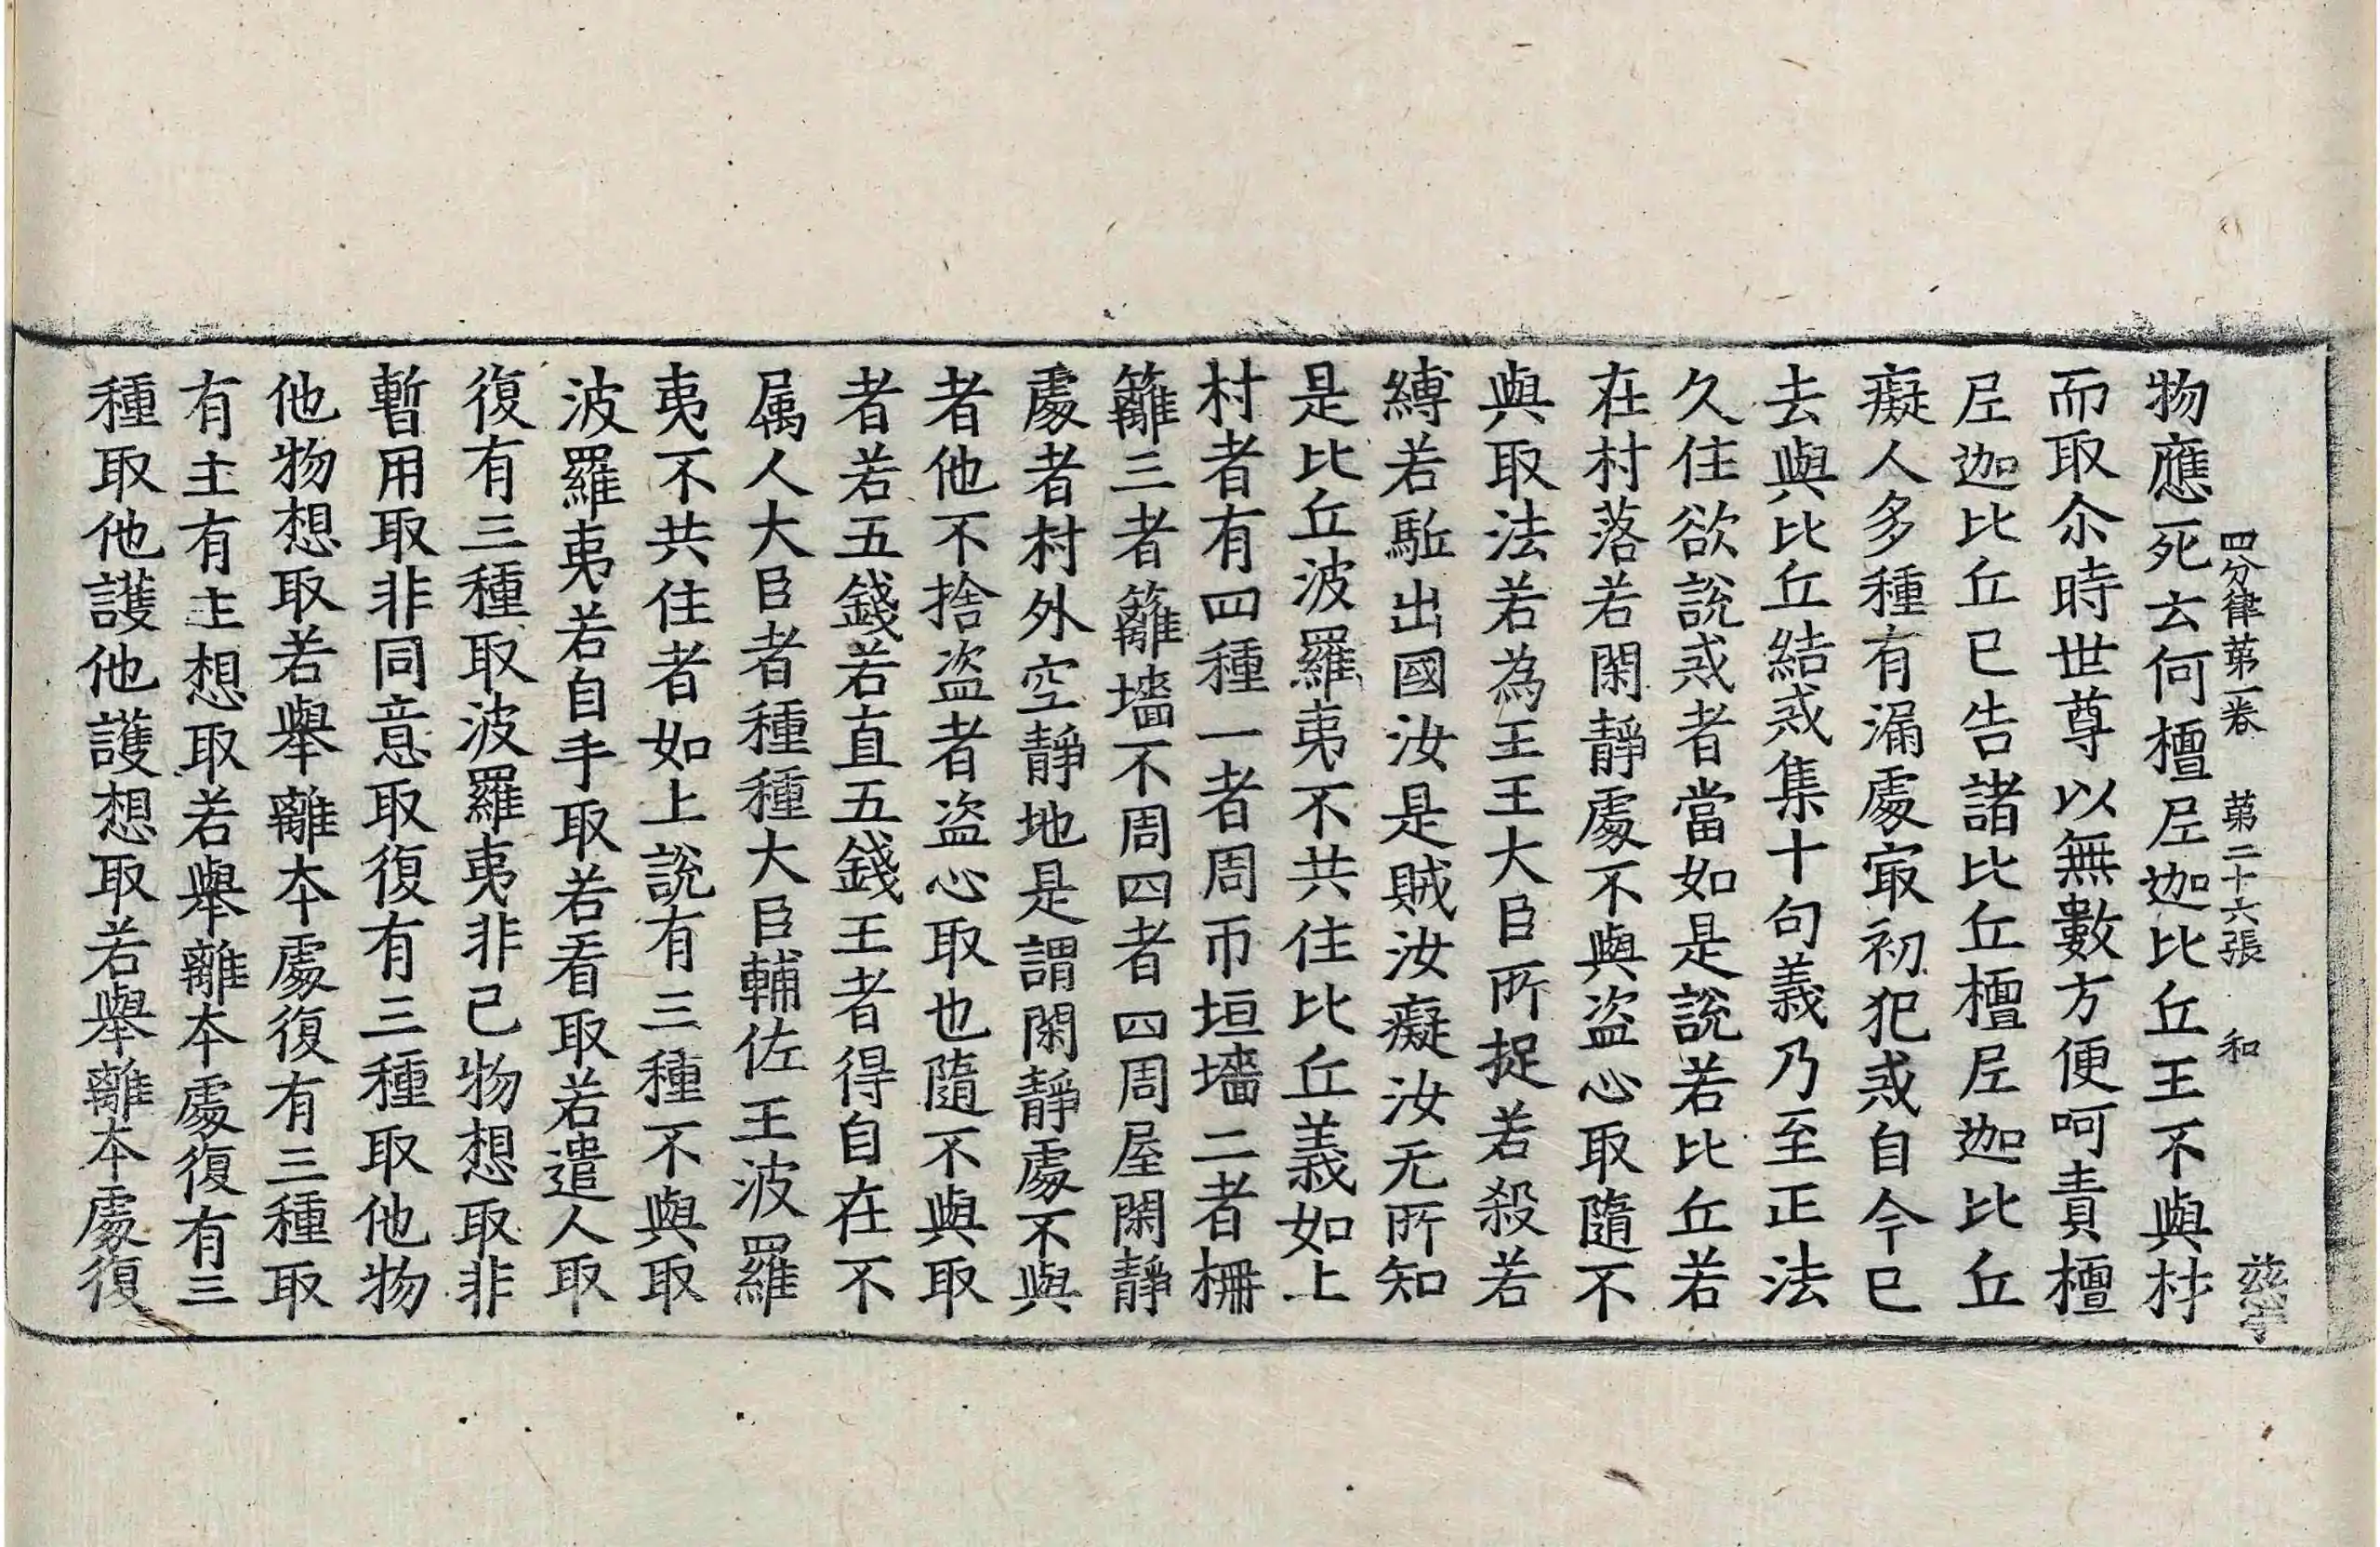 四分律第一卷 第二十六張 和 慈孚
物應死云何檀尼迦比丘王不與材
而取尒時世尊以無數方便呵責檀
尼迦比丘已告諸比丘檀尼迦比丘
癡人多種有漏處㝡初犯戒自今已
去與比丘結戒集十句義乃至正法
久住欲說戒者當如是說若比丘若
在村落若閑靜處不與盜心取隨不
與取法若為王王大臣所捉若殺若
縛若駈出國汝是賊汝癡汝无所知
是比丘波羅夷不共住比丘義如上
村者有四種一者周帀垣墻二者柵
籬三者籬墻不周四者四周屋閑靜
處者村外空靜地是謂閑靜處不與
者他不捨盜者盜心取也隨不與取
者若五錢若直五錢王者得自在不
属人大臣者種種大臣輔佐王波羅
夷不共住者如上說有三種不與取
波羅夷若自手取若看取若遣人取
復有三種取波羅夷非己物想取非
暫用取非同意取復有三種取他物
他物想取若舉離本處復有三種取
有主有主想取若舉離本處復有三
種取他護他護想取若舉離本處復